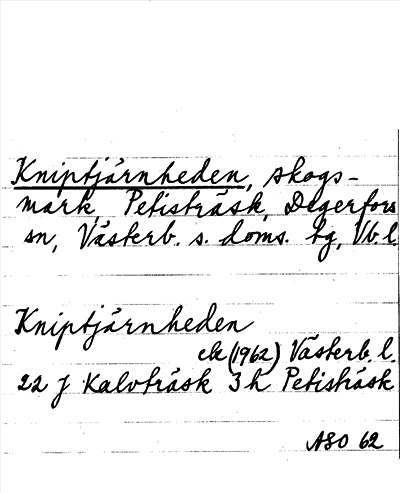 Kniptjärnheden, skogs-
mark, Petisträsk, Degerfors
sn, Västerb. s. doms. tg, Vb.l.
Kniptjärnheden
ek (1962) Västerb. l.
22 J Kalvträsk 3 h Petisträsk
ASO 62